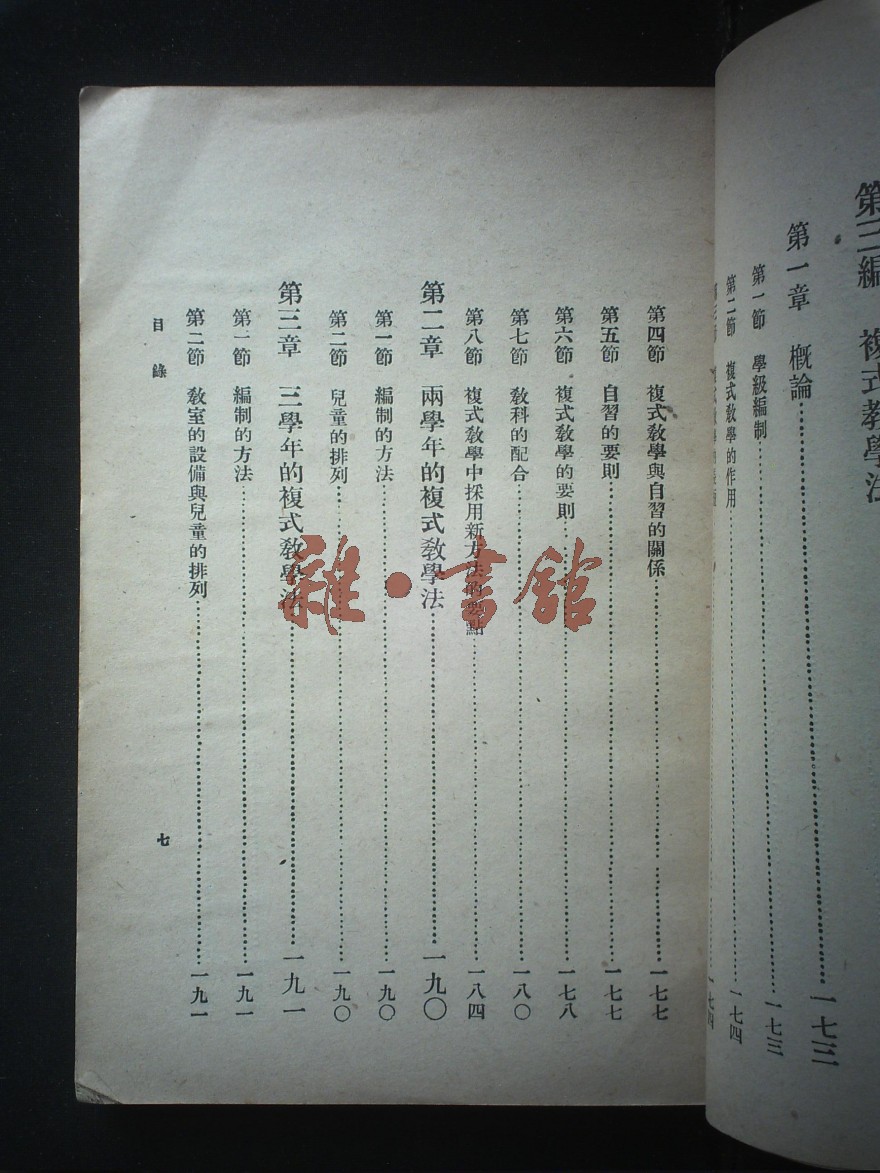 第三編　複式教學法
第一章　概論……一七三
第一節　學級編制……一七三
第二節　複式教學的作用……一七四
一七四
第四節　複式教學與自習的關係……一七七
第五節　自習的要則……一七七
第六節　複式教學的要則……一七八
第七節　教科的配合……一八〇
第八節　複式教學中採用新方法的要點……一八四
第二章　兩學年的複式教學法……一九〇
第一節　編制的方法……一九〇
第二節　兒童的排列……一九〇
第三章　三學年的複式教學法……一九一
第一節　編制的方法……一九一
第二節　教室的設備與兒童的排列……一九一
目錄
七
雜·書館